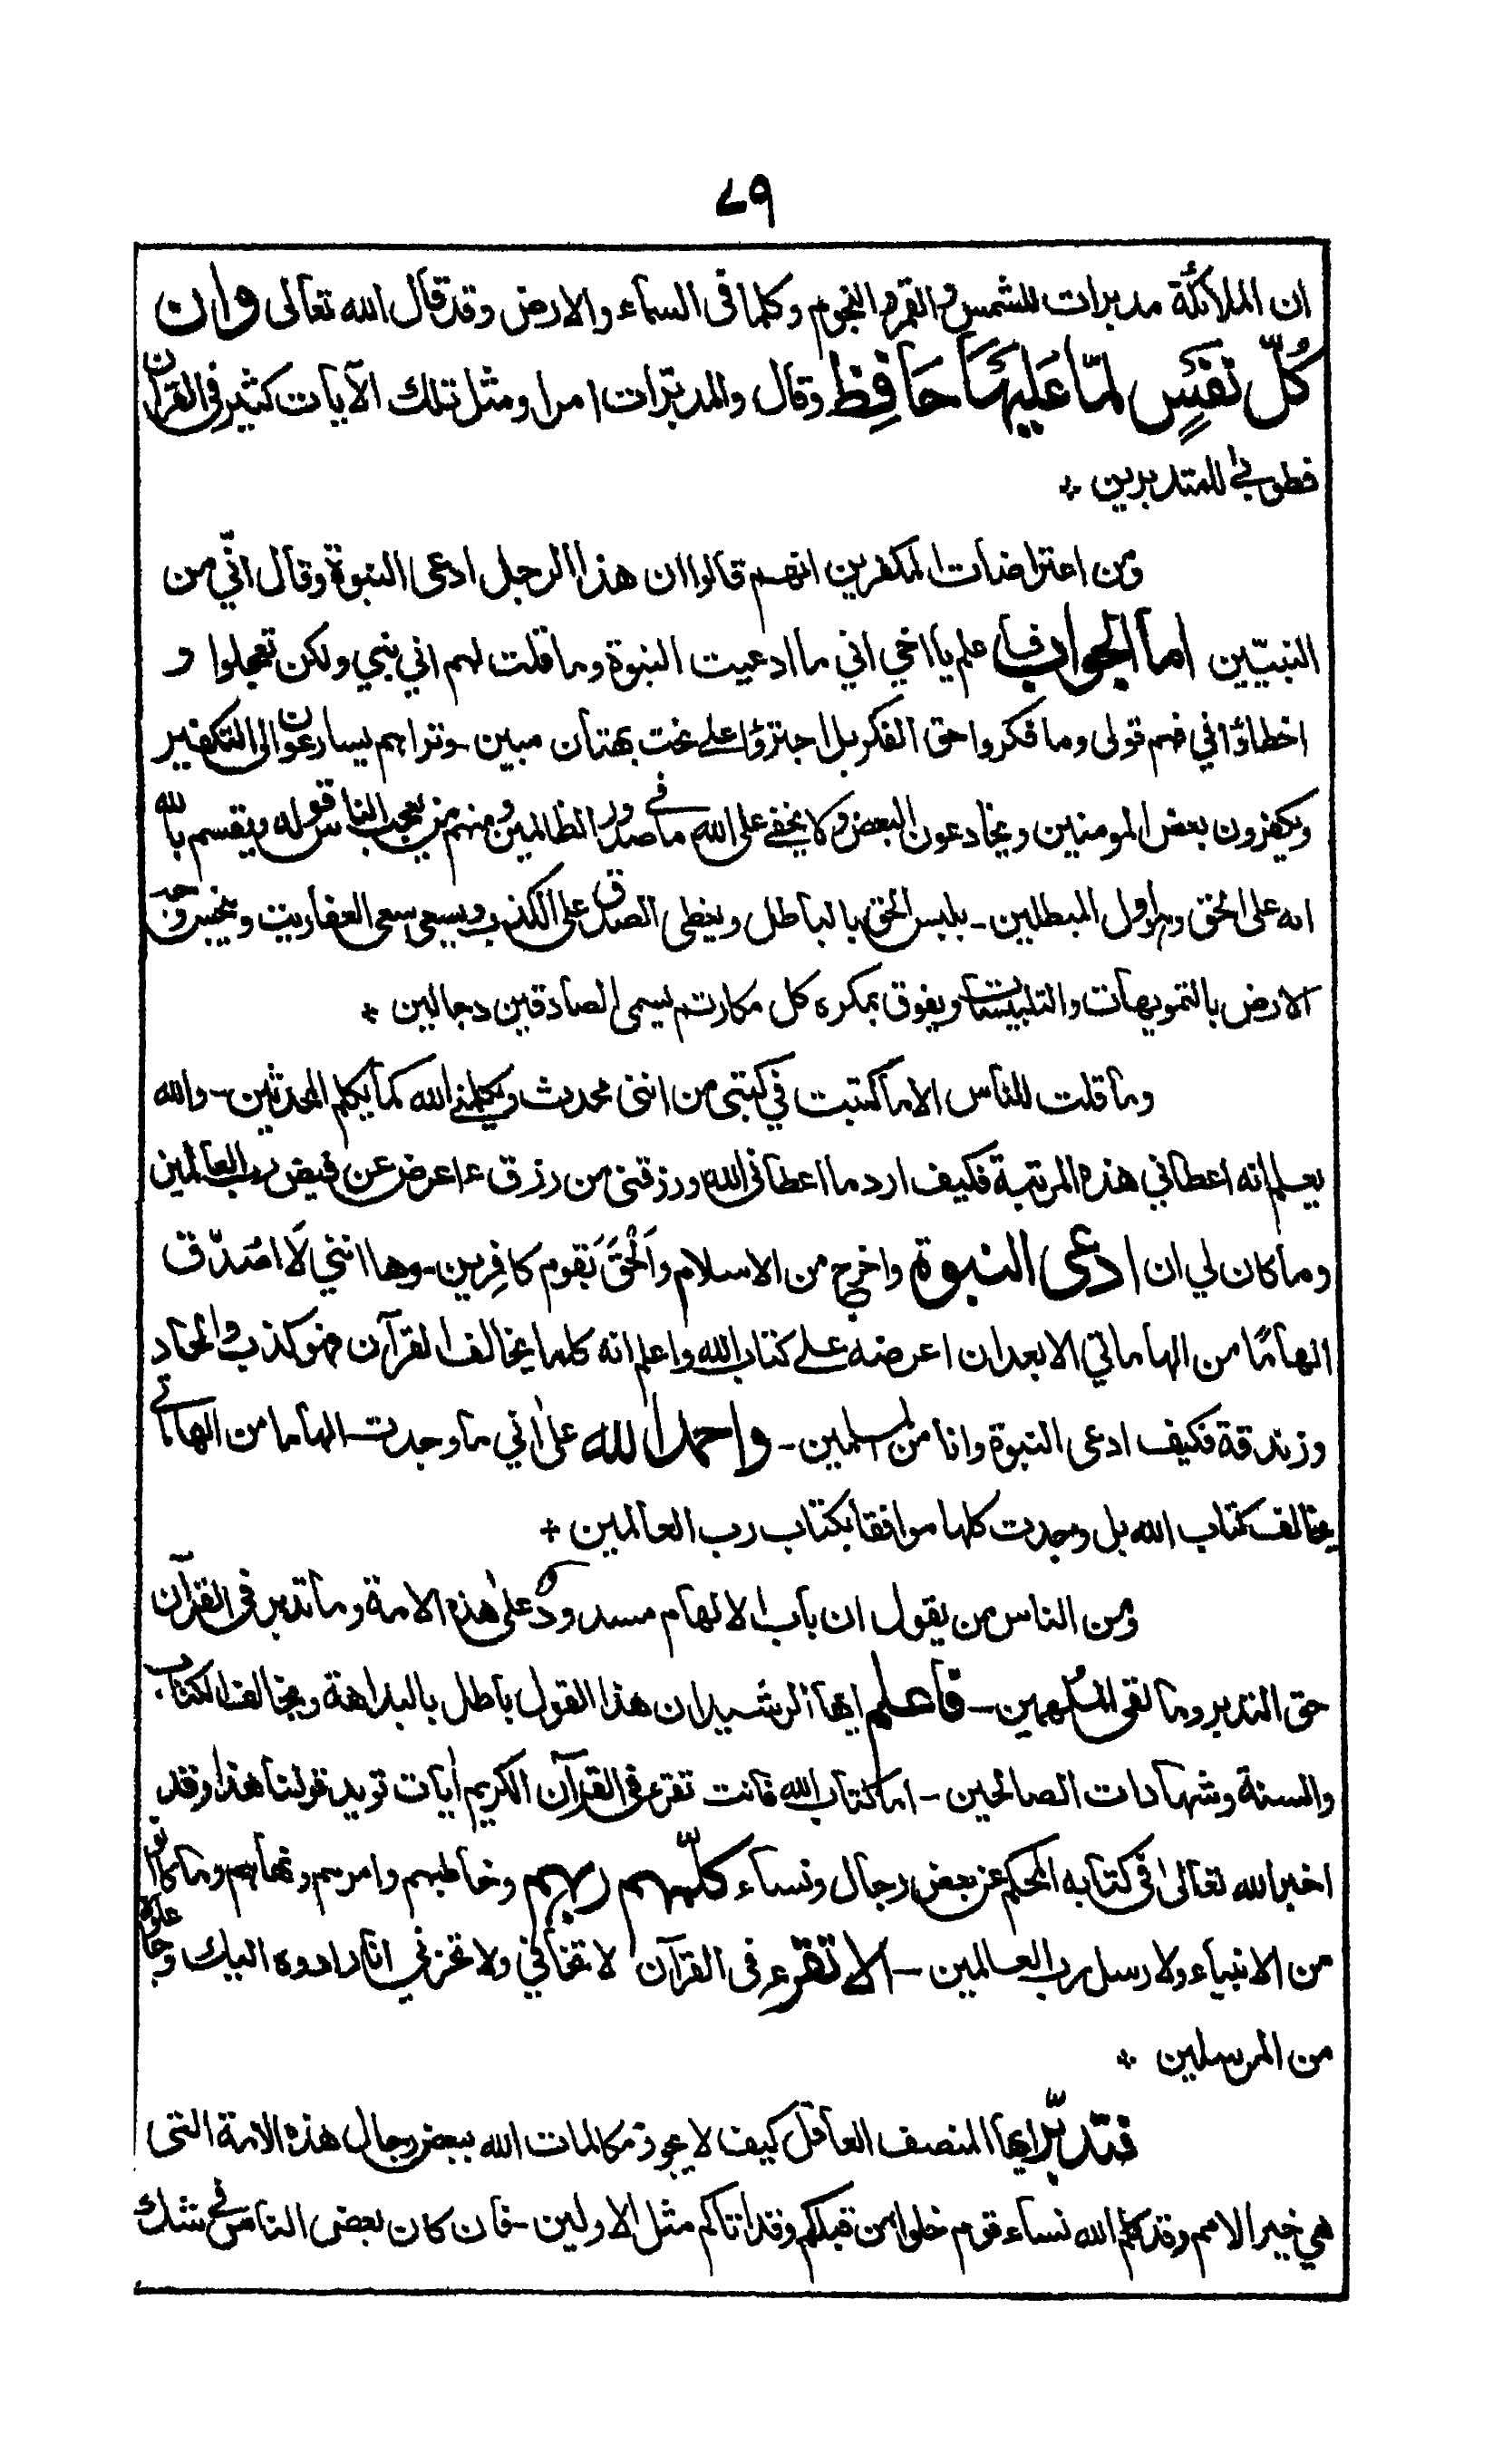 ٧٩
ان الملائكة مدبرات للشمس والقمر والنجوم وكلما فى السماء والارض وقد قال الله تعالى وان
كُلّ نَفْسٍ لمّا عَلَيْهَا حَافِظ وقال والمدبّرات امرا ومثل تلك الآيات كثير فى القرآن
فطوبى للمتدبرين +
ومن اعتراضات المكفرين انهم قالوا ان هذا الرجل ادعى النبوة وقال انّي من
النبيّين اما الجواب فاعلم يا اخي اني ما ادعيت النبوة وما قلت لهم اني نبي ولكن تعجلوا و
اخطاؤا في فهم قولى وما فكروا حق الفكر بل اجتزؤا على نحت بهتان مبين - وتراهم يسارعون الى التكفير
ويكفرون بعض المومنين ويخادعون البعض ولا يخفے على الله ما فى صدور الظالمين ومنهم من يعجب الناس قوله ويقسم بالله
انه على الحق وهو اول المبطلين - يلبس الحق بالباطل ويغطى الصدق على الكذب ويسعى سعى العفاريت وينجس وجه
الارض بالتمويهات والتلبيسات ويفوق بمكره كل مكار ثم يسمى الصادقين دجالين +
وما قلت للناس الا ما كتبت في كتبى من اننى محدث ويكلمنى الله كما يكلم المحدثين - والله
يعلم انه اعطاني هذه المرتبة فكيف ارد ما اعطانى الله ورزقنى من رزق ءاعرض عن فيض رب العالمين
وما كان لي ان ادعى النبوة واخرج من الاسلام وَالْحَقَ بَقوم كافِرين - وها انني لَا اصَدّق
الهامًا من الهاماتي الا بعد ان اعرضه على كتاب الله واعلم انه كلما يخالف القرآن فهو كذب والحاد
وزندقة فكيف ادعى النبوة وانا من المسلمين - واحمد الله على اني ما وجدت الهاما من الهاماتي
يخالف كتاب الله بل وجدت كلها موافقا بكتاب رب العالمين +
ومن الناس من يقول ان باب الالهام مسدود على هذه الامة وما تدبر فى القرآن
حق التدبر وما لقى المُلهمين - فاعلم ايها الرشيد ان هذا القول باطل بالبداهة ويخالف الكتاب
والسنة وشهادات الصالحين - اما كتاب الله فانت تقرء فى القرآن الكريم ايات تويد قولنا هذا وقد
اخبر الله تعالى فى كتابه المحكم عن بعض رجال ونساء كلّمهم ربهم وخاطبهم وامرهم ونهاهم وما كانوا
من الانبياء ولا رسل رب العالمين - الا تقرء فى القرآن لا تخافي ولا تحزني انا رادوه اليك وجاعلوه
من المرسلين +
فتدبّر ايها المنصف العاقل كيف لا يجوز مكالمات الله ببعض رجال هذه الامة التى
هي خير الامم وقد كلم الله نساء قوم خلوا من قبلكم وقد اتاكم مثل الاولين - فان كان بعض الناس فى شك